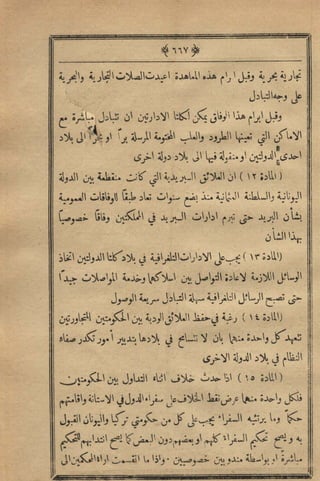 ﴿ ٦٦٧ ﴾
تجارية بحرية وقبل ابرام هذه المعاهدة اعيدت الصلات التجارية والبحرية
على وجه التبادل
وقبل ابرام هذا الوفاق يمكن لكلتا الادارتين ان تتبادل مباشرة مع
الاماكن التي تعينها الطرود والعلب المختومة المرسلة براً او بحراً الى بلاد
احدى الدولتين او منقولة فيها الى بلاد دولة اخرى
( المادة ١٢ ) ان العلائق البريدية التي كانت منقطعة بين الدولة
اليونانية والسلطنة العثمانية منذ بضع سنوات تعاد طبقاً للوفاقات العمومية
بشأن البريد حتى تبرم ادارات البريد في المملكتين وفاقاً خصوصياً
بهذا الشأن
( المادة ١٣ ) يجب على الادارات التلغرافية في بلاد كلتا الدولتين اتخاذ
الوسائل اللازمة لاعادة التواصل بين اسلاكهما وخدمة المواصلات جيداً
حتى تصبح الرسائل التلغرافية سهلة التبادل سريعة الوصول
( المادة ١٤ ) رغبة في حفظ العلائق الودية بين الحكومتين المتجاورتين
تتعهد كل واحدة منهما بان لا تتسامح في بلادها بتدبير أمور تكدر صفاء
النظام في بلاد الدولة الاخرى
( المادة ١٥ ) اذا حدث خلاف اثناء التداول بين الحكومتين
فلكل واحدة منهما عرض نقط الخلاف على سفراء الدول في الاستانة واقامتهم
حكماً وما يرتئيه السفراء يجب على كل من حكومتي تركيا واليونان القبول
به ويصح تحكيم السفراء كلهم او بعضهم دون البعض كما يصح انتدابهم للتحكيم
مباشرة او بواسطة مندوبين خصوصيين واذا ما انقسمت اراء المحكمين الى